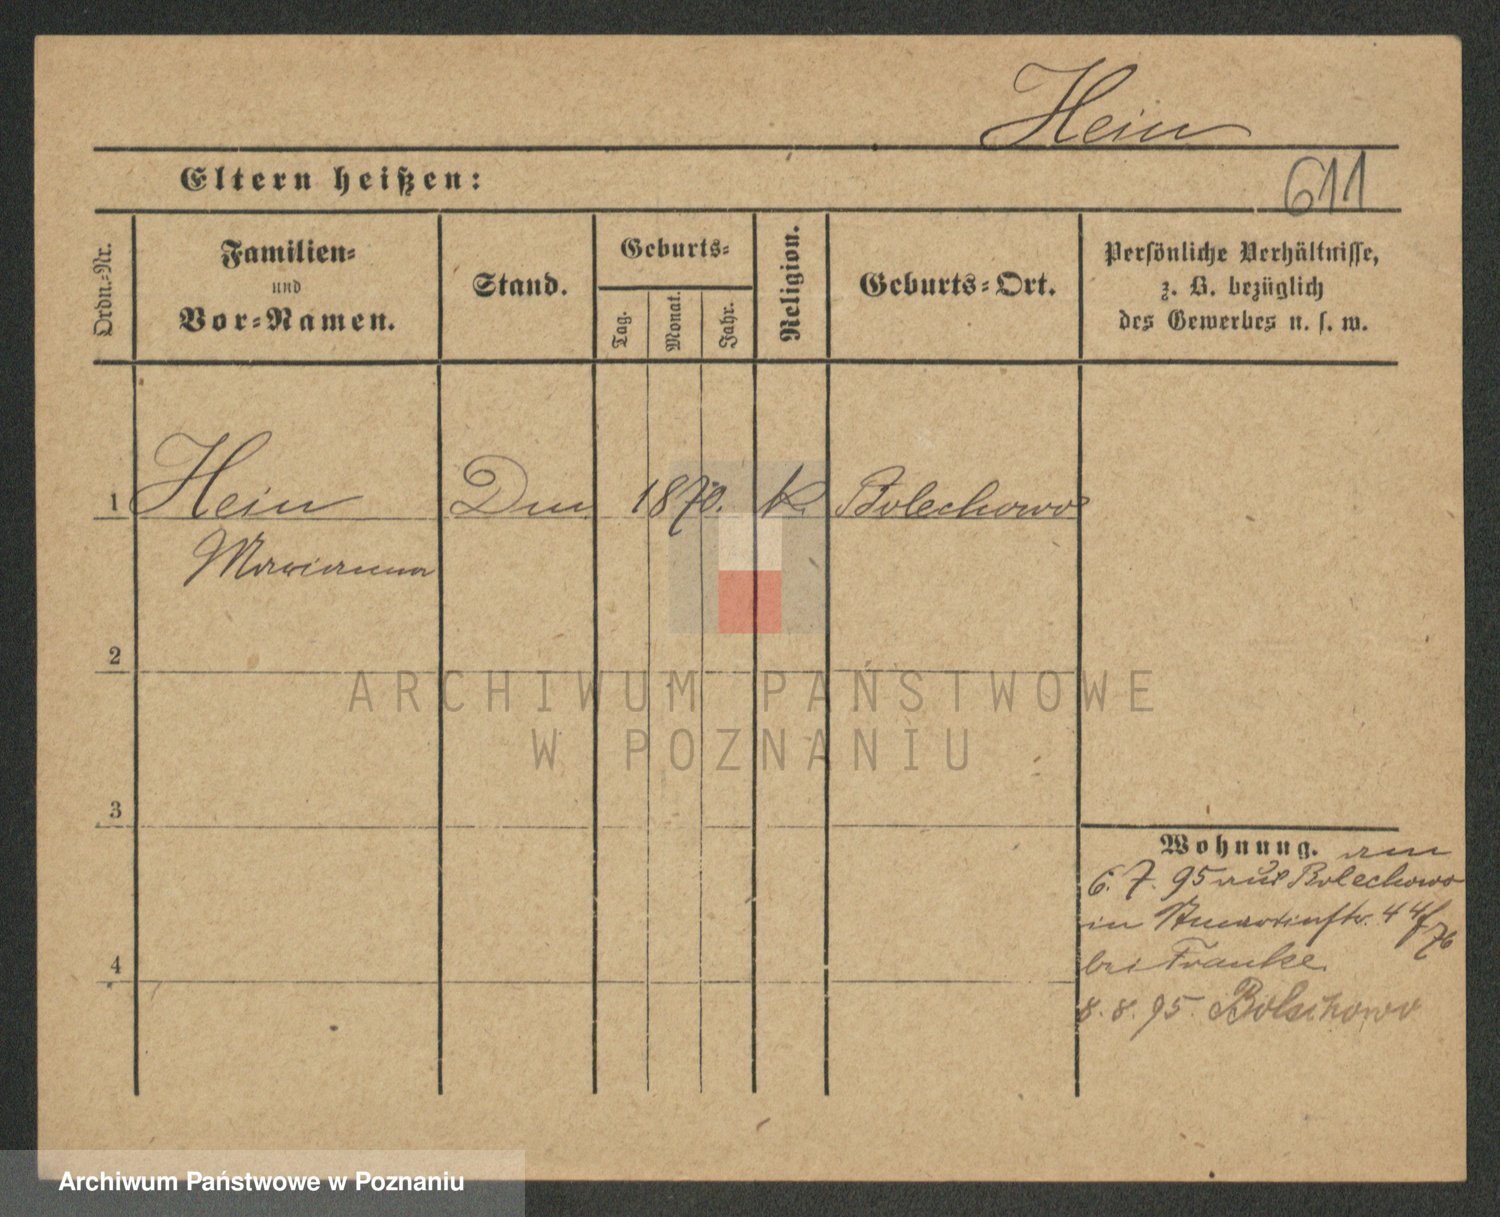 Hein
611
Eltern heißen:
Ordn.-Nr.
Familien-
und
Vor-Namen.
Stand.
Geburts-
Tag.
Monat.
Jahr.
Religion.
Geburts-Ort.
Persönliche Verhältnisse,
z. B. bezüglich
des Gewerbes u. s. w.
1 Hein
Marianna
1870. K. Bolechowo
2
ARCHIWUM PAŃSTWOWE
W POZNANIU
3
Wohnung. am
6. 7. 95 aus Bolechowo
in Stmartinstr. 44
bei Franke
4
8. 8. 95. Bolechowo
Archiwum Państwowe w Poznaniu